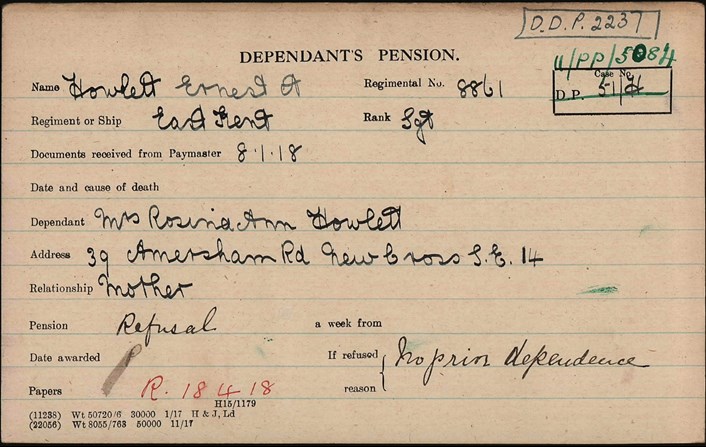 D.D.P. 2237
DEPENDANT'S PENSION.
11/PP/5084
Name Howlett Ernest A Regimental No. 8861
Case No.
D.P. 51/H
Regiment or Ship East Kent Rank Sgt
Documents received from Paymaster 8.1.18
Date and cause of death
Dependant Mrs Rosina Ann Howlett
Address 39 Amersham Rd New Cross S.E. 14
Relationship Mother
Pension Refusal a week from
Date awarded If refused reason { No prior dependence
Papers R. 18 4 18
H15/1179
(11238) Wt 50720/6 30000 1/17 H & J, Ld
(22056) Wt 8055/763 50000 11/17